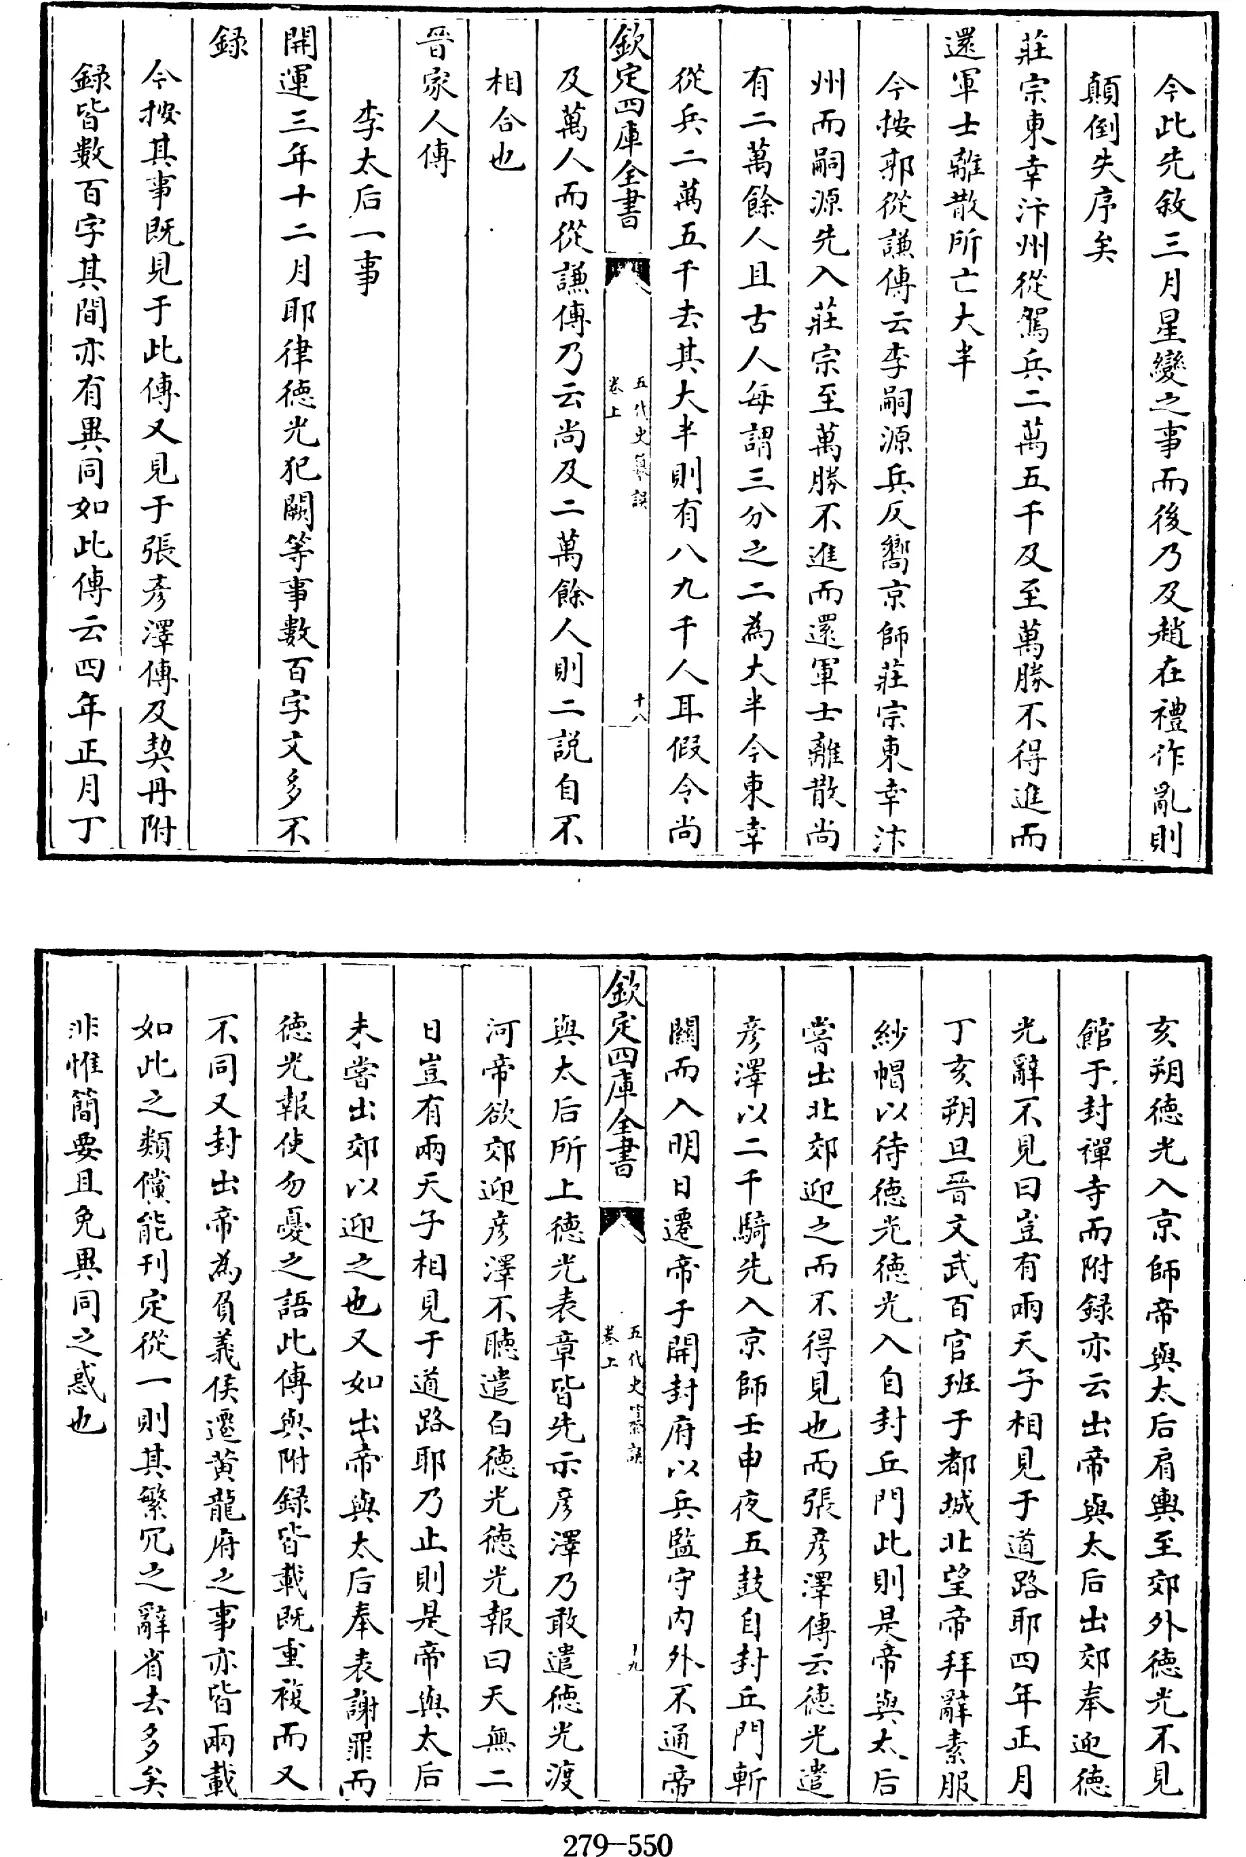 今此先敘三月星變之事而後乃及趙在禮作亂則
顛倒失序矣
莊宗東幸汴州從駕兵二萬五千及至萬勝不得進而
還軍士離散所亡大半
今按郭從謙傳云李嗣源兵反嚮京師莊宗東幸汴
州而嗣源先入莊宗至萬勝不進而還軍士離散尚
有二萬餘人且古人每謂三分之二為大半今東幸
從兵二萬五千去其大半則有八九千人耳假令尚
欽定四庫全書
五代史纂誤
卷上
十八
及萬人而從謙傳乃云尚及二萬餘人則二説自不
相合也
晉家人傳
李太后一事
開運三年十二月耶律德光犯闕等事數百字文多不
録
今按其事既見于此傳又見于張彥澤傳及契丹附
録皆數百字其間亦有異同如此傳云四年正月丁
亥朔德光入京師帝與太后肩輿至郊外德光不見
館于封禪寺而附録亦云出帝與太后出郊奉迎德
光辭不見曰豈有兩天子相見于道路耶四年正月
丁亥朔旦晉文武百官班于都城北望帝拜辭素服
紗帽以待德光德光入自封丘門此則是帝與太后
嘗出北郊迎之而不得見也而張彥澤傳云德光遣
彥澤以二千騎先入京師壬申夜五鼓自封丘門斬
關而入明日遷帝于開封府以兵監守内外不通帝
欽定四庫全書
五代史纂誤
卷上
十九
與太后所上德光表章皆先示彥澤乃敢遣德光渡
河帝欲郊迎彥澤不聽遣白德光德光報曰天無二
日豈有兩天子相見于道路耶乃止則是帝與太后
未嘗出郊以迎之也又如出帝與太后奉表謝罪而
德光報使勿憂之語此傳與附録皆載既重複而又
不同又封出帝為負義侯遷黃龍府之事亦皆兩載
如此之類儻能刊定從一則其繁冗之辭省去多矣
非惟簡要且免異同之惑也
279-550